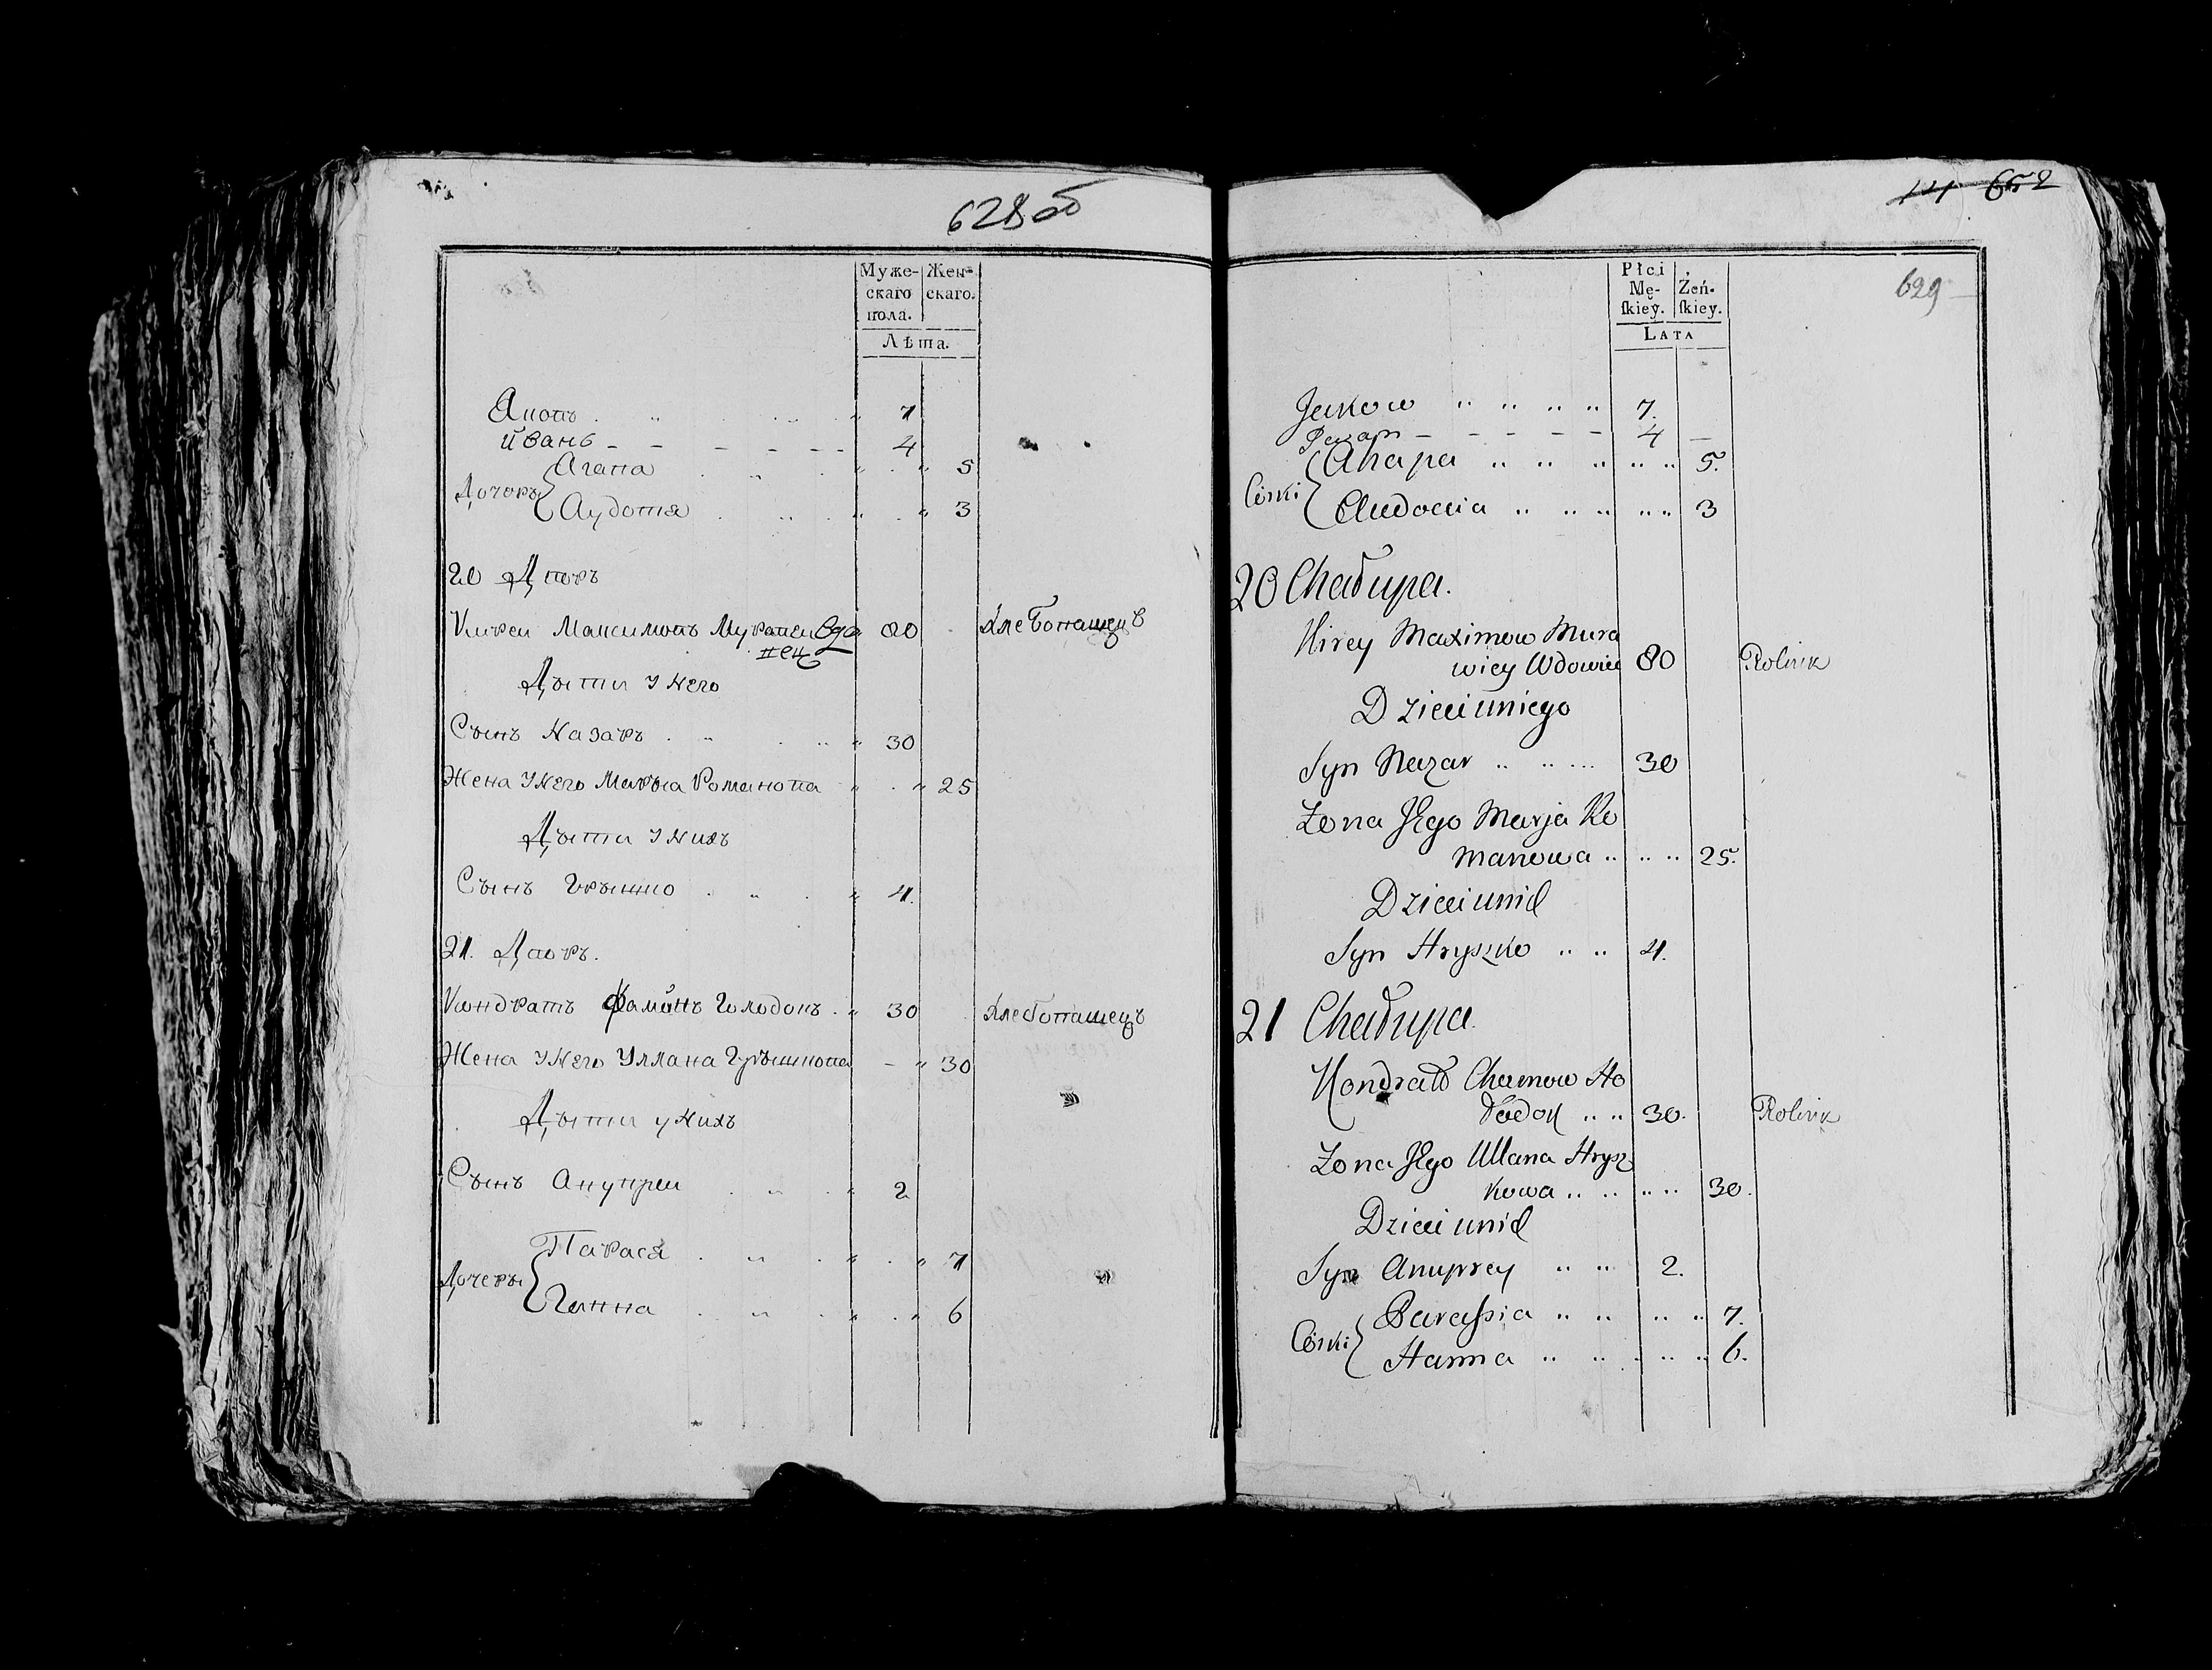 628 об
Муже- Жен-
скаго скаго.
пола.
Лѣта.
7
Иванъ - - - - - - 4
Агапа 5
Дочеръ
Аудотя 3
20 Дворъ
Кирей Максимовъ Муравей Вдо 80 Хлебопашецъ
вец
Дѣти У Него
Сынъ Назаръ 30
Жена У Него Маръя Романова 25
Дѣти У Нихъ
Сынъ Грышко 4.
21. Дворъ.
Кондратъ Фаминъ Голодокъ 30 Хлебопашецъ
Жена У Него Улляна Грышкова - 30
Дѣти у Нихъ
Сынъ Анупреи 2
Парася 7
Дочеры
Ганна 6
14 652
629
Płci Żeń-
Mę- ſkiey.
ſkiey.
LATA
Jakow 7.
4 -
Ahapa 5.
Córki
Audocia 3
20 Chałupa.
Kirey Maximow Mura
wiey Wdowiec 80 Rolnik
Dzieci u niego
Syn Nazar 30
Żona Jego Marja Ro
manowa 25.
Dzieci u nich
Syn Hryszko 4.
21 Chałupa.
Kondrat Chamow Ho
łodok 30. Rolnik
Żona Jego Ullana Hrysz
kowa 30.
Dzieci u nich
Syn Anuprey 2.
Paraſsia 7.
Córki
Hanna 6.